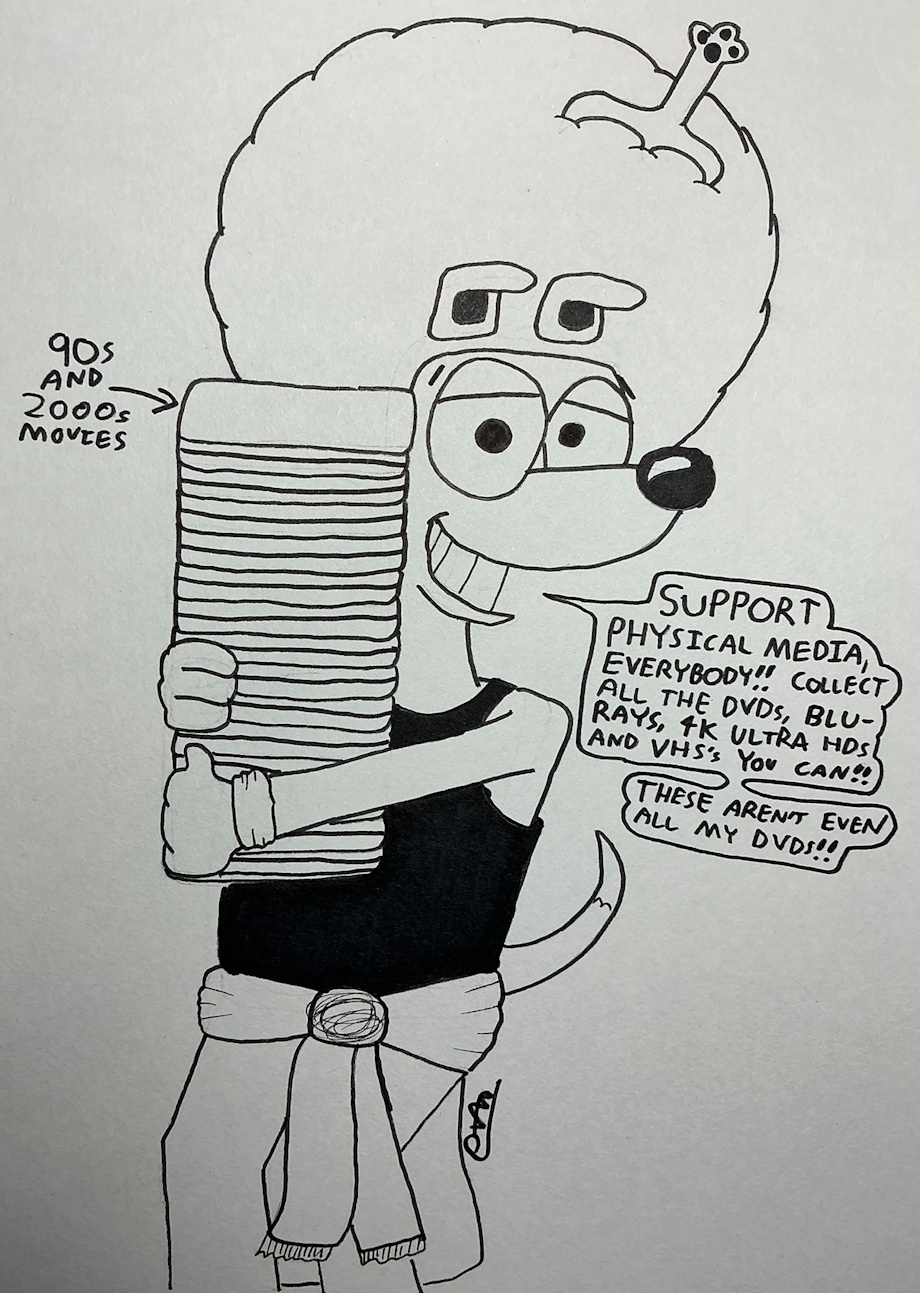 90s
AND
2000s
MOVIES
SUPPORT
PHYSICAL MEDIA,
EVERYBODY!! COLLECT
ALL THE DVDs, BLU-
RAYS, 4K ULTRA HDs
AND VHS's YOU CAN!!
THESE AREN'T EVEN
ALL MY DVDs!!